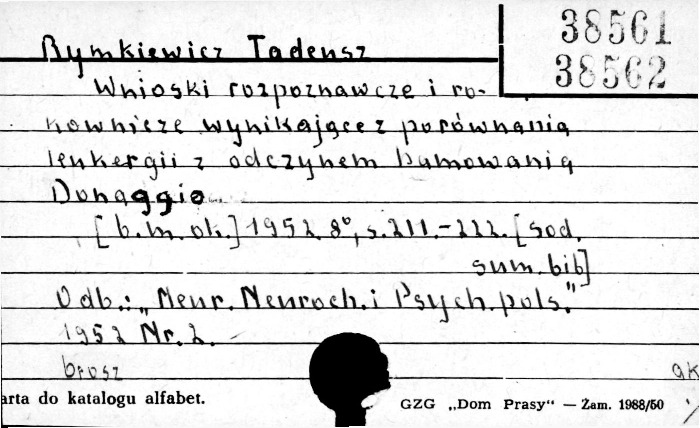 Rymkiewicz Tadeusz
38561
38562
Wnioski rozpoznawcze i ro-
kownicze wynikające z porównania
leukergii z odczynem hamowania
Donaggio
[b.m.ok.] 1952. 8°, s. 211.-222. [sod.
sum. bib]
Odb.: „Neur. Neuroch. i Psych. pols."
1952 Nr. 2.
brosz
ak
arta do katalogu alfabet.
GZG „Dom Prasy“ — Zam. 1988/50